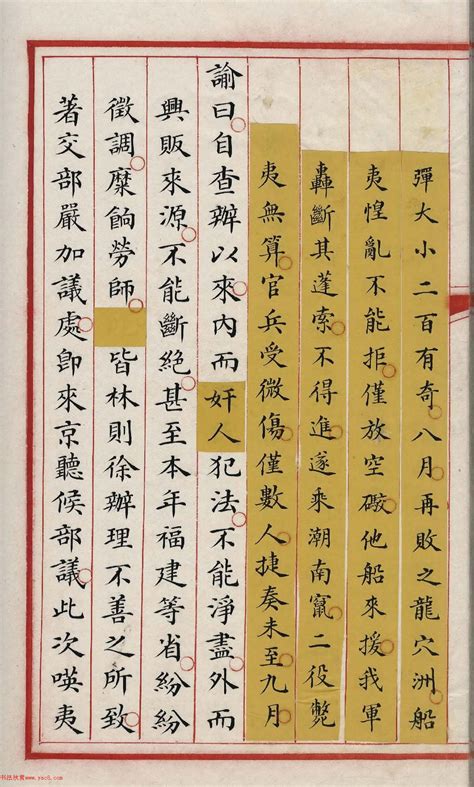 彈大小二百有奇八月再敗之龍穴洲船
夷惶亂不能拒僅放空礮他船來援我軍
轟斷其蓬索不得進遂乘潮南竄二役斃
夷無算官兵受微傷僅數人捷奏未至九月
諭曰自查辦以來內而奸人犯法不能淨盡外而
興販來源不能斷絕甚至本年福建等省紛紛
徵調糜餉勞師皆林則徐辦理不善之所致
著交部嚴加議處即來京聽候部議此次嘆夷
书法欣赏www.yac8.com